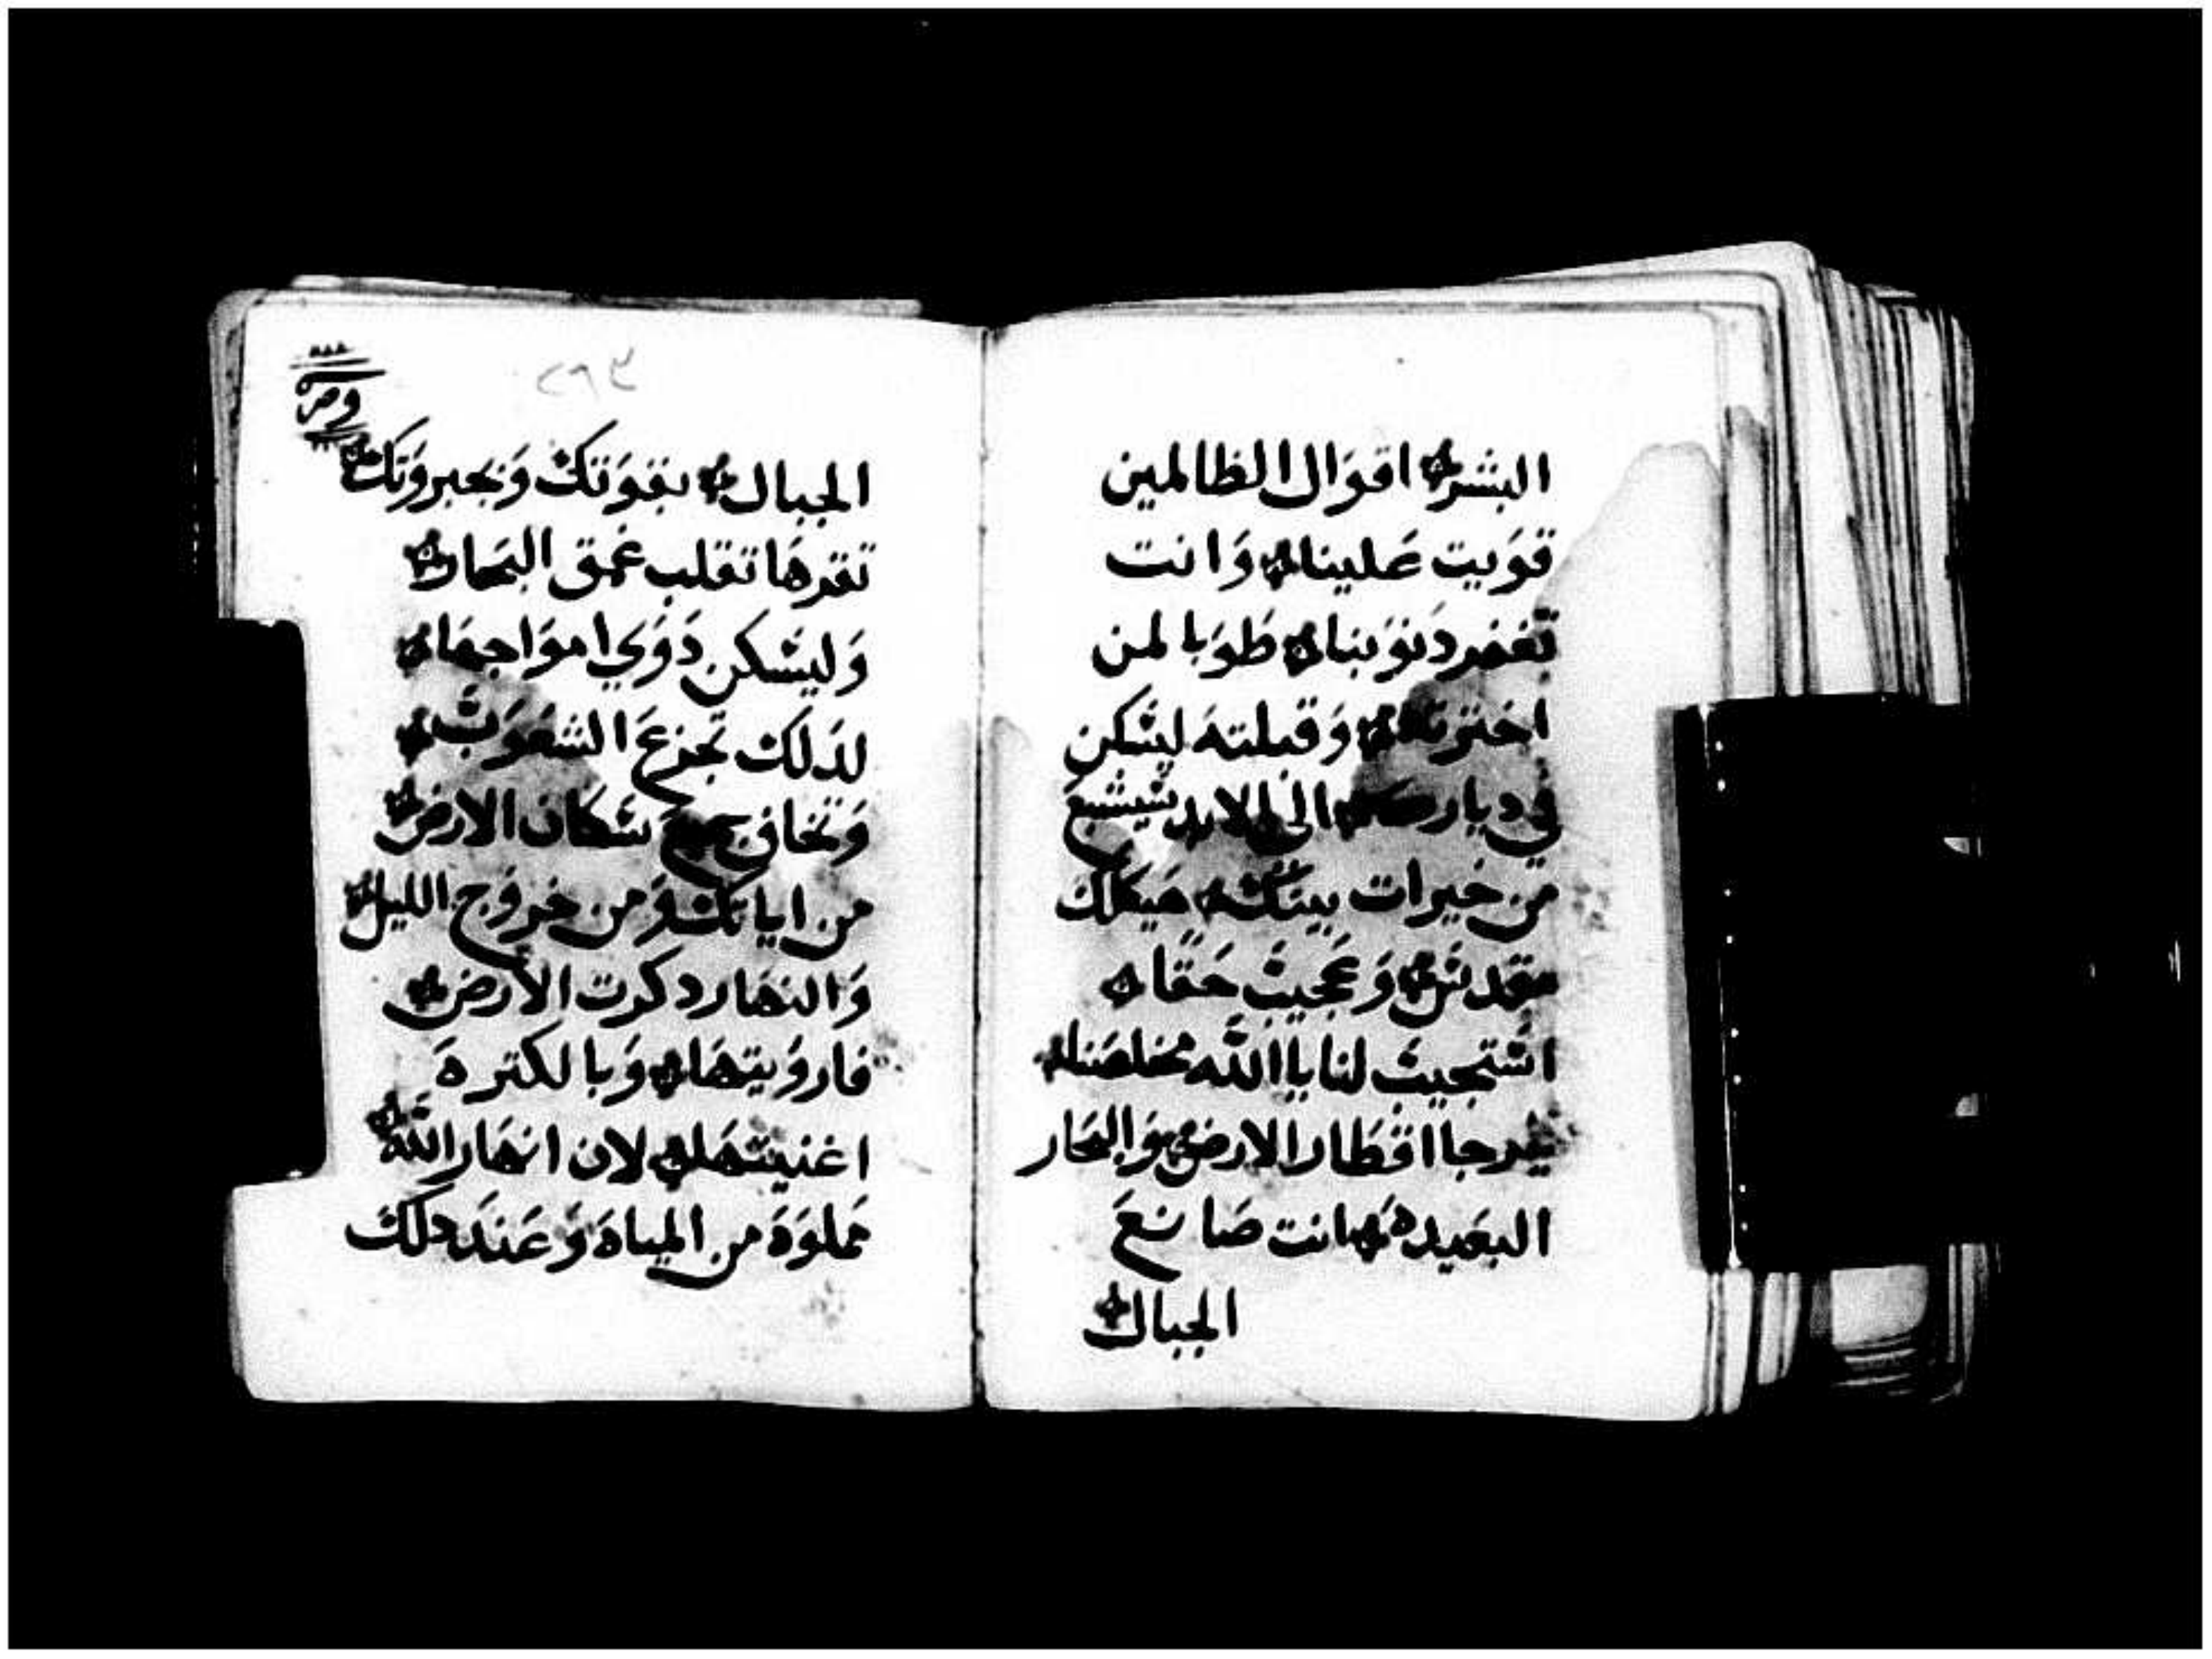 البشر اقوَال الظالمين
قوَيت عَلينا وَانت
تغفر دنوَبنا طوَبا لمن
اخترته وَقبلته ليسَكن
في ديارك الى الابد سَيشبعَ
من خيرات بيتك هَيكلك
مقدسَ وَعَجيبَ حَقا
استجيبَ لنا ياالله مخلصَنا
يا رجا اقطار الارض وَالبحَار
البعَيده انت صَانعَ
الجبال
٢٩٣
الجبال بقوَتك وَبجبروَتك
تقرهَا تقلب عَمق البحَار
وَليسَكن دَوَي اموَاجهَا
لدَلك تجزعَ الشعَوَب
وَتخاف جميع سَكان الارض
من اياتك وَمن خروَج الليل
وَالنهَار دكرت الارض
فاروَيتهَا وَبالكترهَ
اغنيتهَا لان انهَار الله
مملوَهَ من المياهَ وَعَندَ دلك